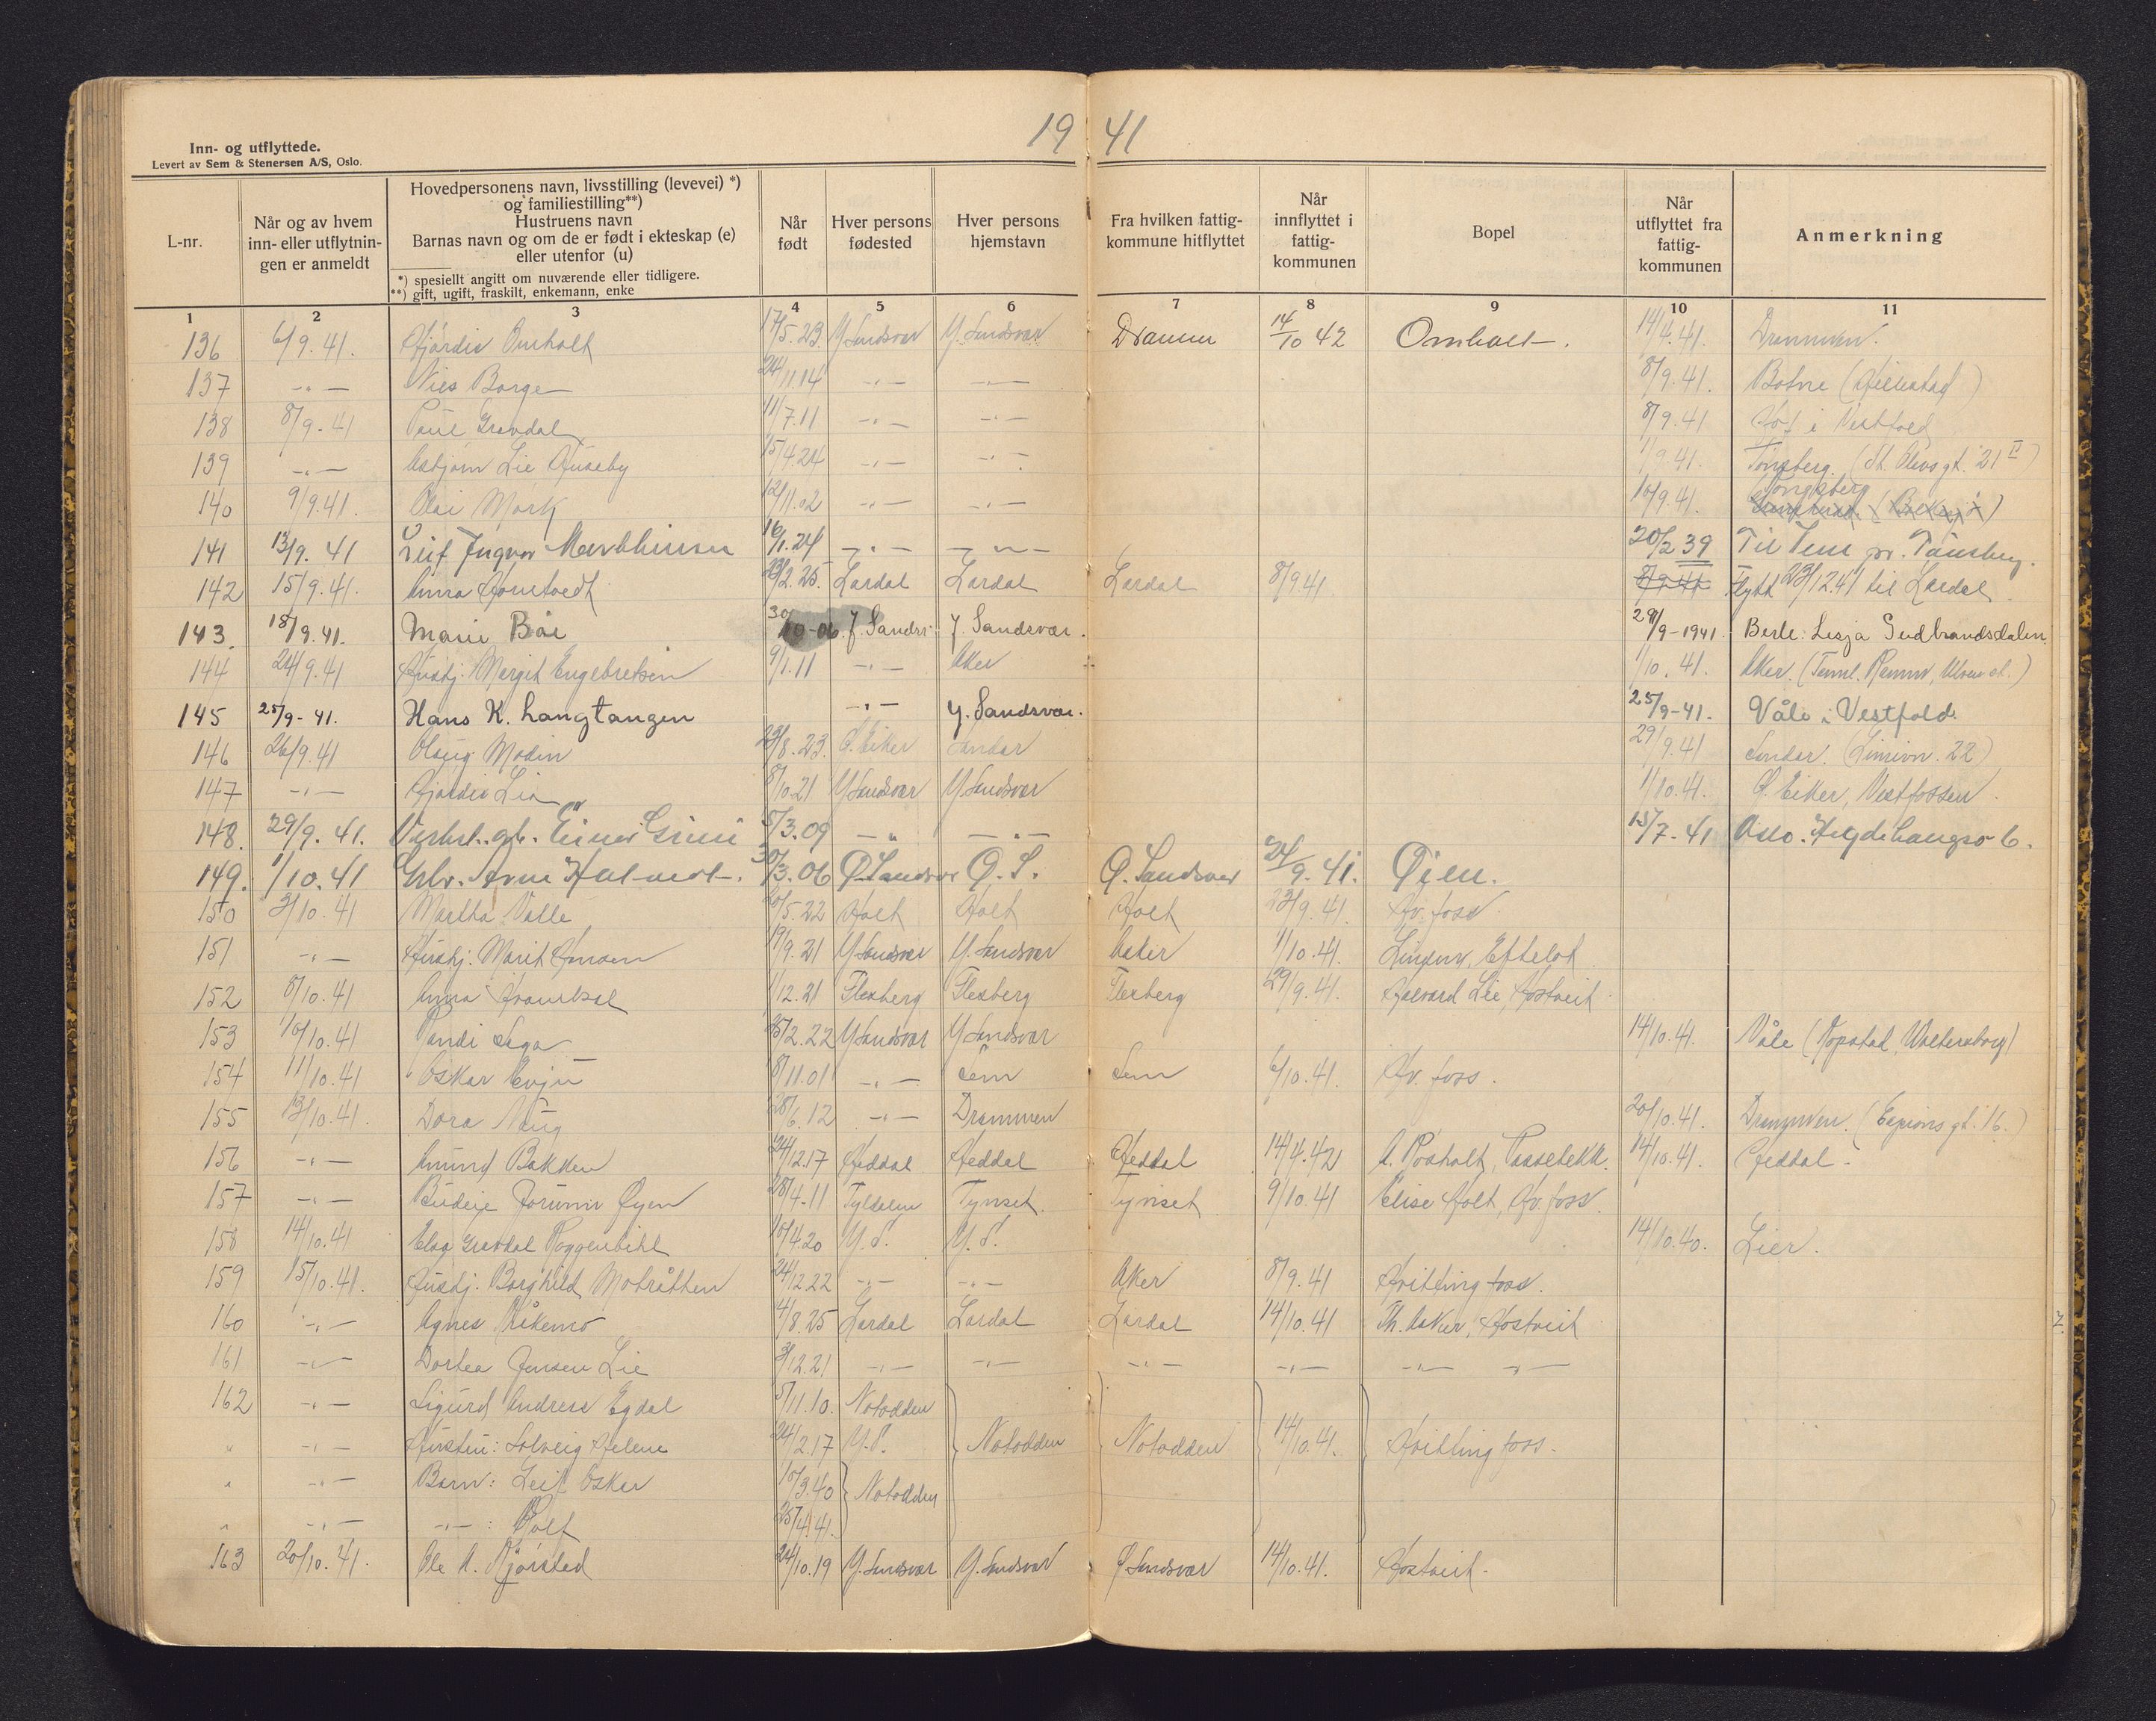 19 41
Inn- og utflyttede.
Levert av Sem & Stenersen A/S, Oslo.
L-nr.
Når og av hvem
inn- eller utflytnin-
gen er anmeldt
Hovedpersonens navn, livsstilling (levevei) *)
og familiestilling**)
Hustruens navn
Barnas navn og om de er født i ekteskap (e)
eller utenfor (u)
*) spesiellt angitt om nuværende eller tidligere.
**) gift, ugift, fraskilt, enkemann, enke
Når
født
Hver persons
fødested
Hver persons
hjemstavn
Fra hvilken fattig-
kommune hitflyttet
Når
innflyttet i
fattig-
kommunen
Bopel
Når
utflyttet fra
fattig-
kommunen
Anmerkning
1 2 3 4 5 6 7 8 9 10 11
136 6/9.41. Hjördis Omholt 17/5.23. Y. Sandsvær Y. Sandsvær Drammen 14/10 42 Omholt. 14/4.41. Drammen.
137 -"- Nils Borge 24/11.14 -"- -"- 8/9.41. Botne
138 8/9.41 Paul Grevdal 11/7.11 -"- -"- 8/9.41 Hof i Vestfold
139 -"- Asbjørn Lie Huseby 15/4.24 -"- -"- 1/9.41. Tønsberg. (St. Olavsgt. 21 II)
140 9/9.41. Olai Mørk 12/11.02 -"- -"- 10/9.41. Kongsberg
141 13/9.41 Leif Ingvar 16/1.24 -"- -"- 20/2 39 Til Sem pr. Tønsberg.
142 15/9.41. Anna 2.25. Lardal Lardal Lardal 8/9 41 8/9 41 Flytt 23/12.41 til Lardal
143. 18/9.41. Marie Bøe 30/10-06. Y. Sandsv. Y. Sandsvær. 29/9-1941. Berle: Lesja Gudbrandsdalen
144 24/9.41 Husbj. Margit Engebretsen 9/1.11 -"- Aker 1/10.41. Aker.
145 25/9-41. Hans K. Langtangen -"- Y. Sandsvær. 25/9-41. Våle i Vestfold.
146 26/9.41 Olaug Modin 23/8.23. Ø. Eiker Sandar 29/9.41 Sandar.
147 -"- Hjørdis Lia 8/10.21 Y. Sandsvær Y. Sandsvær 1/10.41. Ø. Eiker, Vestfossen.
148. 29/9.41. Einar 5/3.09 -"- -"- 15/7-41 Oslo.
149. 1/10.41 Arne 30/3.06 Ø. Sandsvær Ø. S. Ø. Sandsvær 24/9.41. Øien.
150 3/10.41 Martha Valle 20/5.22 Holt Holt Holt 23/9.41. Hv. foss.
151 -"- Husbj. Marit Hansen 19/9.21 Y. Sandsvær Y. Sandsvær Asker 1/10.41. Efteløt
152 8/10.41 Anna 1/12.21 Flesberg Flesberg Flesberg 29/9.41. Halvard Lie, Hostveit.
153 10/10.41 Randi Haga 25/2.22 Y. Sandsvær Y. Sandsvær 14/10.41. Våle (Kopstad,
154 11/10.41 Oskar Evju 18/11.01 -"- Sem Sem 6/10.41. Hv. foss.
155 13/10.41. Dora Haug 28/6.12 -"- Drammen 20/10.41. Drammen.
156 -"- Amund Bakken 24/12.17 Heddal Heddal Heddal 14/4.42 14/10.41. Heddal.
157 -"- Budeie Jorunn Øyen 28/4-11 Tyldalen Tynset. Tynset 9/10.41 Elise Holt, Hv. foss.
158 14/10.41 Elsa Grevdal 10/4.20 Y. S. Y. S. 14/10.40. Lier.
159 15/10.41. Husbj. Borghild 24/12.22 -"- -"- Aker 8/9.41 Hvittingfoss.
160 -"- Agnes 4/8.25 Lardal Lardal Lardal 14/10.41 Hostveit
161 -"- Dortea Jensen Lie 3/12.21 -"- -"- -"- -"- -"- -"-
162 -"- Sigurd Andreas Egdal 5/11.10. Notodden
" -"- Hustru: Solveig Helene 24/2.17 Y. S. Notodden Notodden 14/10.41. Hvittingfoss.
" -"- Barn: Leif Oskar 10/3.40 Notodden
" -"- -"-: Rolf 25/4.41.
163 20/10.41. Ole A. 24/10.19 Y. Sandsvær Y. Sandsvær Ø. Sandsvær 14/10.41. Hostveit.